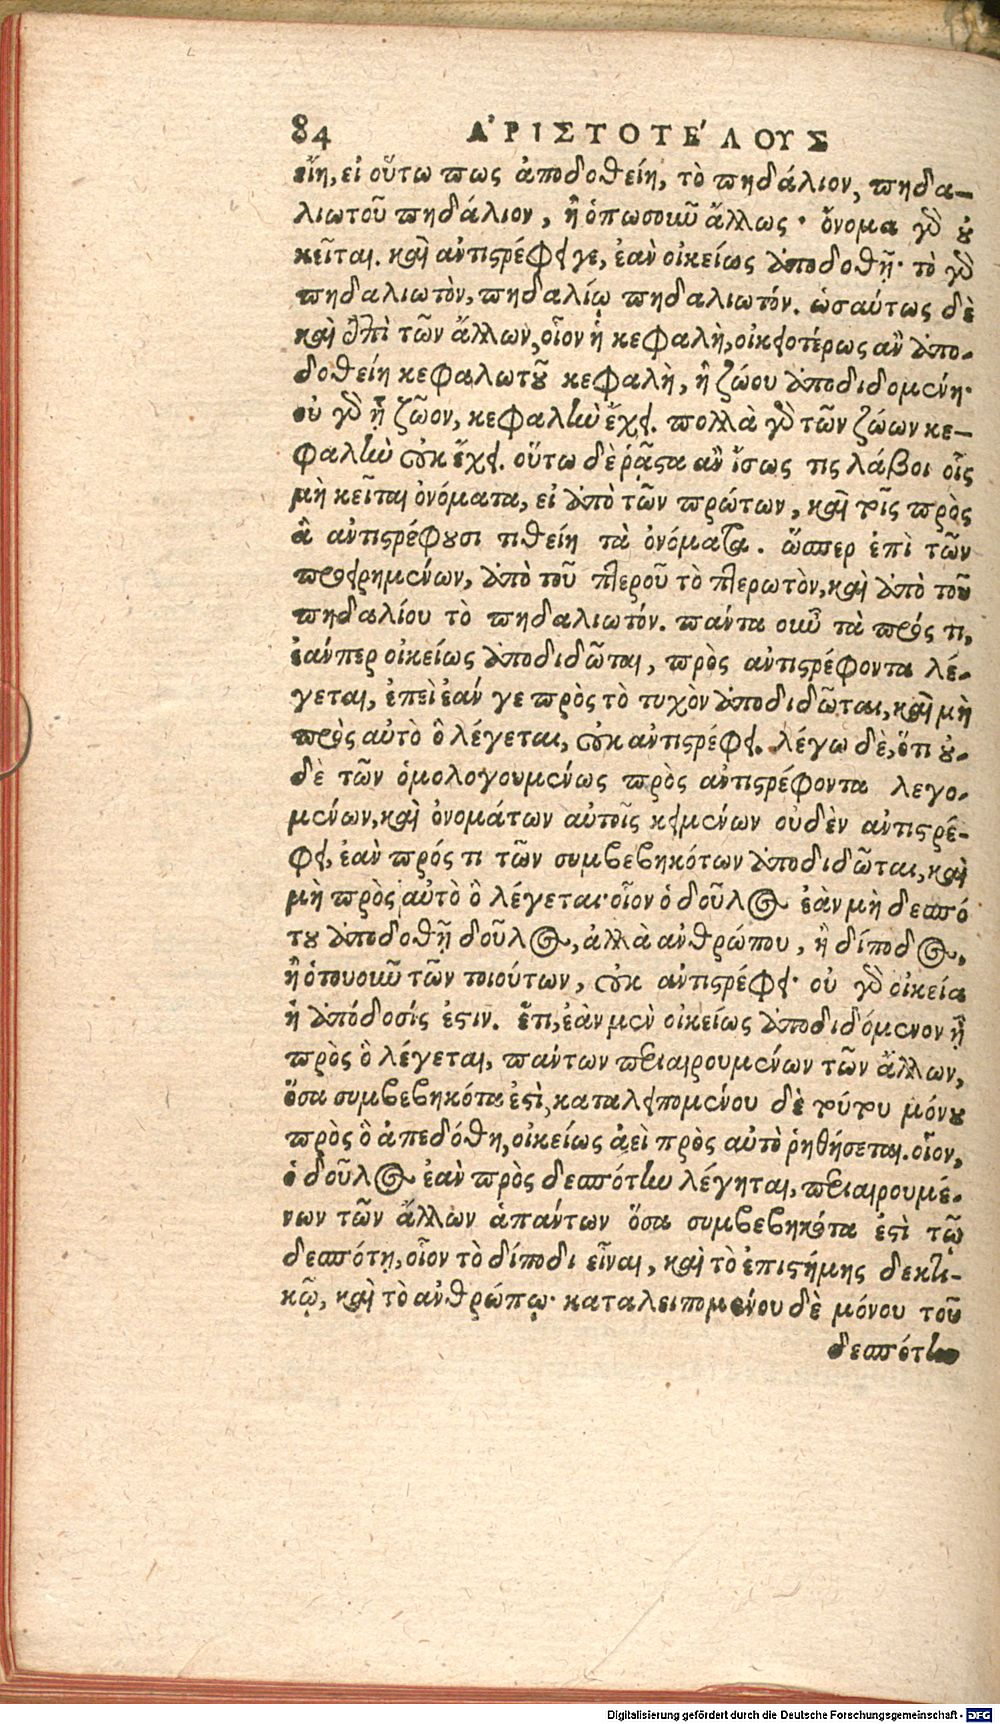 84 ἈΡΙΣΤΟΤΈΛΟΥΣ
εἴη, εἰ οὕτω πως ἀποδοθείη, τὸ πηδάλιον, πηδα-
λιωτοῦ πηδάλιον, ἢ ὁπωσοιῦ ἄλλως· ὄνομα γὸ ȣ
κεῖται. καὶ ἀντιϛρέφει γε, ἐαν οἰκείως ἀποδοθῇ· τὸ γὸ
πηδαλιωτὸν, πηδαλίῳ πηδαλιωτόν. ὡσαύτως δὲ
καὶ ἐπὶ τῶν ἄλλων, οἷον ἡ κεφαλὴ, οἰκειοτέρως ἂν ἀπο-
δοθείη κεφαλωτοῦ κεφαλὴ, ἢ ζώου ἀποδιδομένη·
οὐ γὸ ᾗ ζῶον, κεφαλὴν ἔχει. πολλὰ γὸ τῶν ζώων κε-
φαλὴν οὐκ ἔχει. οὕτω δὲ ῥᾷστα ἂν ἴσως τις λάβοι οἷς
μὴ κεῖται ὀνόματα, εἰ ἀπὸ τῶν πρώτων, καὶ τοῖς πρὸς
ἃ ἀντιϛρέφουσι τιθείη τὰ ὀνόματα. ὥσπερ ἐπὶ τῶν
προειρημένων, ἀπὸ τοῦ πτεροῦ τὸ πτερωτὸν, καὶ ἀπὸ τοῦ
πηδαλίου τὸ πηδαλιωτόν. πάντα οὖν τὰ πρός τι,
ἐάνπερ οἰκείως ἀποδιδῶται, πρὸς ἀντιϛρέφοντα λέ-
γεται, ἐπεὶ ἐάν γε πρὸς τὸ τυχὸν ἀποδιδῶται, καὶ μὴ
πρὸς αὐτὸ ὃ λέγεται, οὐκ ἀντιϛρέφει. λέγω δὲ, ὅτι οὐ-
δὲ τῶν ὁμολογουμένως πρὸς ἀντιϛρέφοντα λεγο-
μένων, καὶ ὀνομάτων αὐτοῖς κειμένων οὐδὲν ἀντιϛρέ-
φει, ἐὰν πρός τι τῶν συμβεβηκότων ἀποδιδῶται, καὶ
μὴ πρὸς αὐτὸ ὃ λέγεται· οἷον ὁ δοῦλος ἐὰν μὴ δεσπό
του ἀποδοθῇ δοῦλος, ἀλλὰ ἀνθρώπου, ἢ δίποδος,
ἢ ὁτουοῦν τῶν τοιούτων, οὐκ ἀντιϛρέφει· οὐ γὸ οἰκεία
ἡ ἀπόδοσίς ἐϛιν. ἔτι, ἐὰν μὲν οἰκείως ἀποδιδόμενον ᾖ
πρὸς ὃ λέγεται, πάντων περιαιρουμένων τῶν ἄλλων,
ὅσα συμβεβηκότα ἐϛὶ, καταλειπομένου δὲ τούτου μόνου
πρὸς ὃ ἀπεδόθη, οἰκείως ἀεὶ πρὸς αὐτὸ ῥηθήσεται. οἷον,
ὁ δοῦλος ἐὰν πρὸς δεσπότην λέγηται, περιαιρουμέ-
νων τῶν ἄλλων ἁπάντων ὅσα συμβεβηκότα ἐϛὶ τῷ
δεσπότῃ, οἷον τὸ δίποδι εἶναι, καὶ τὸ ἐπιϛήμης δεκτι-
κῷ, καὶ τὸ ἀνθρώπῳ· καταλειπομένου δὲ μόνου τοῦ
δεσπότην
Digitalisierung gefördert durch die Deutsche Forschungsgemeinschaft - DFG